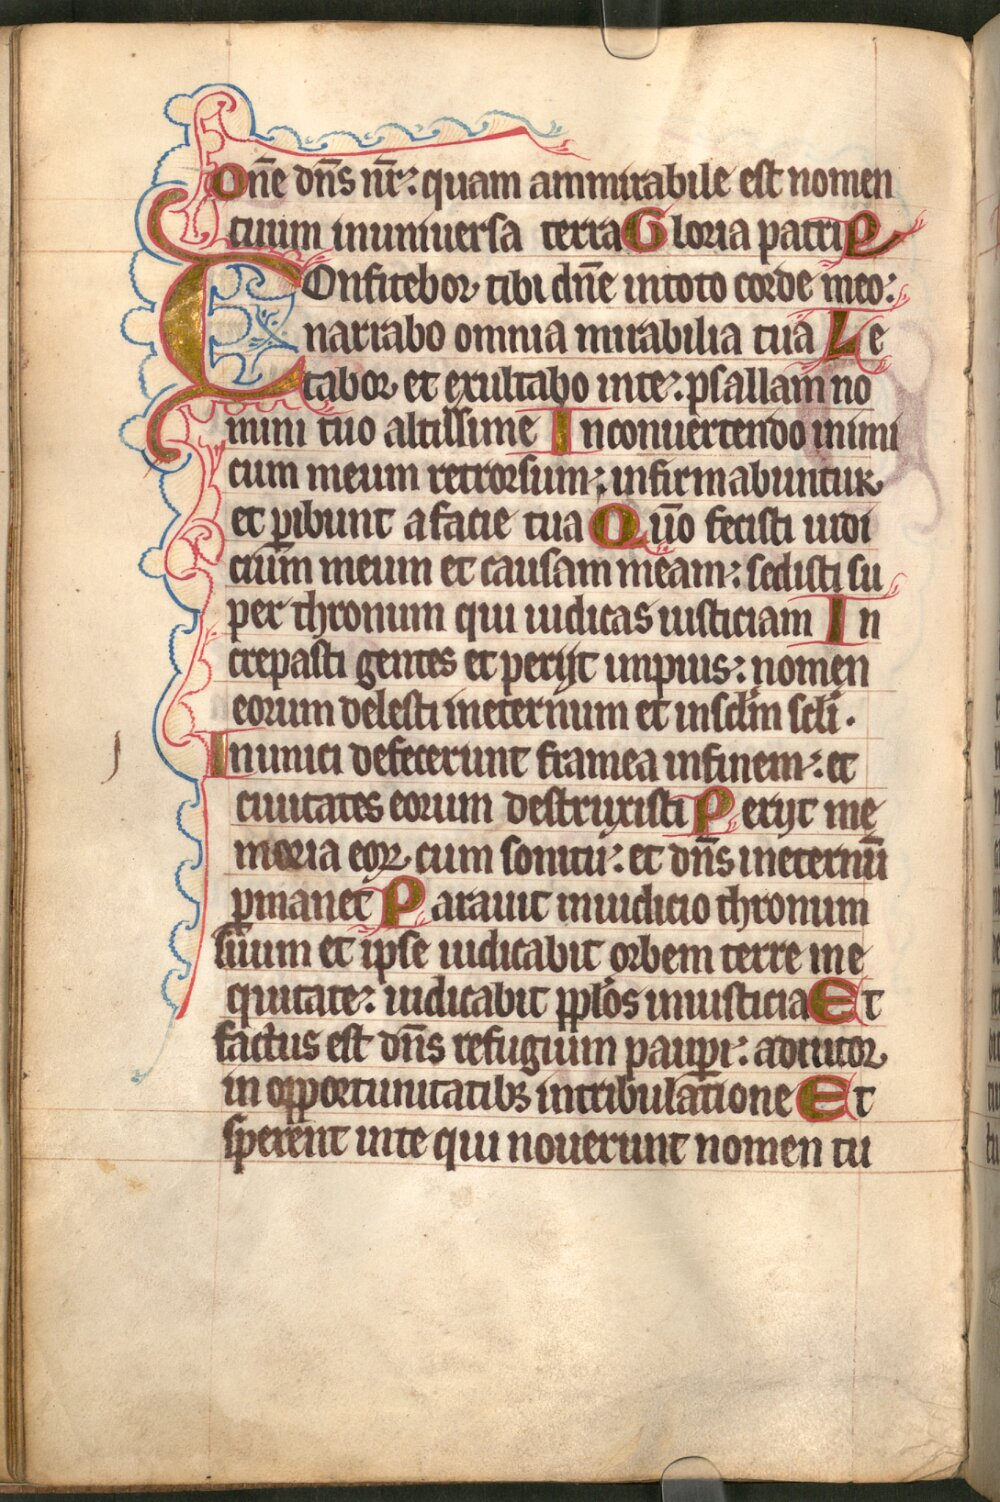 one dn̄s nr̄: quam ammirabile est nomen
tuum inuniuersa terra Gloria patri P
COnfitebor tibi dn̄e intoto corde meo:
narrabo omnia mirabilia tua Le
tabor et exultabo inte: psallam no
mini tuo altissime Inconuertendo inimi
cum meum retrorsum: infirmabuntur
et ꝑibunt afacie tua Qūo fecisti iudi
cium meum et causam meam: sedisti su
per thronum qui iudicas iusticiam In
crepasti gentes et perijt impius: nomen
eorum delesti ineternum et insclm̄ scli.
Inimici defecerunt framea infinem: et
ciuitates eorum destruxisti Perijt me
moria eoꝝ cum sonitu: et dn̄s ineternū
ꝑmanet Parauit iniudicio thronum
suum et ipse iudicabit orbem terre ine
quitate: iudicabit pplōs iniusticia Et
factus est dn̄s refugium pauꝑi: adiutor
in opportunitatibꝫ intribulatione Et
sperent inte qui nouerunt nomen tu